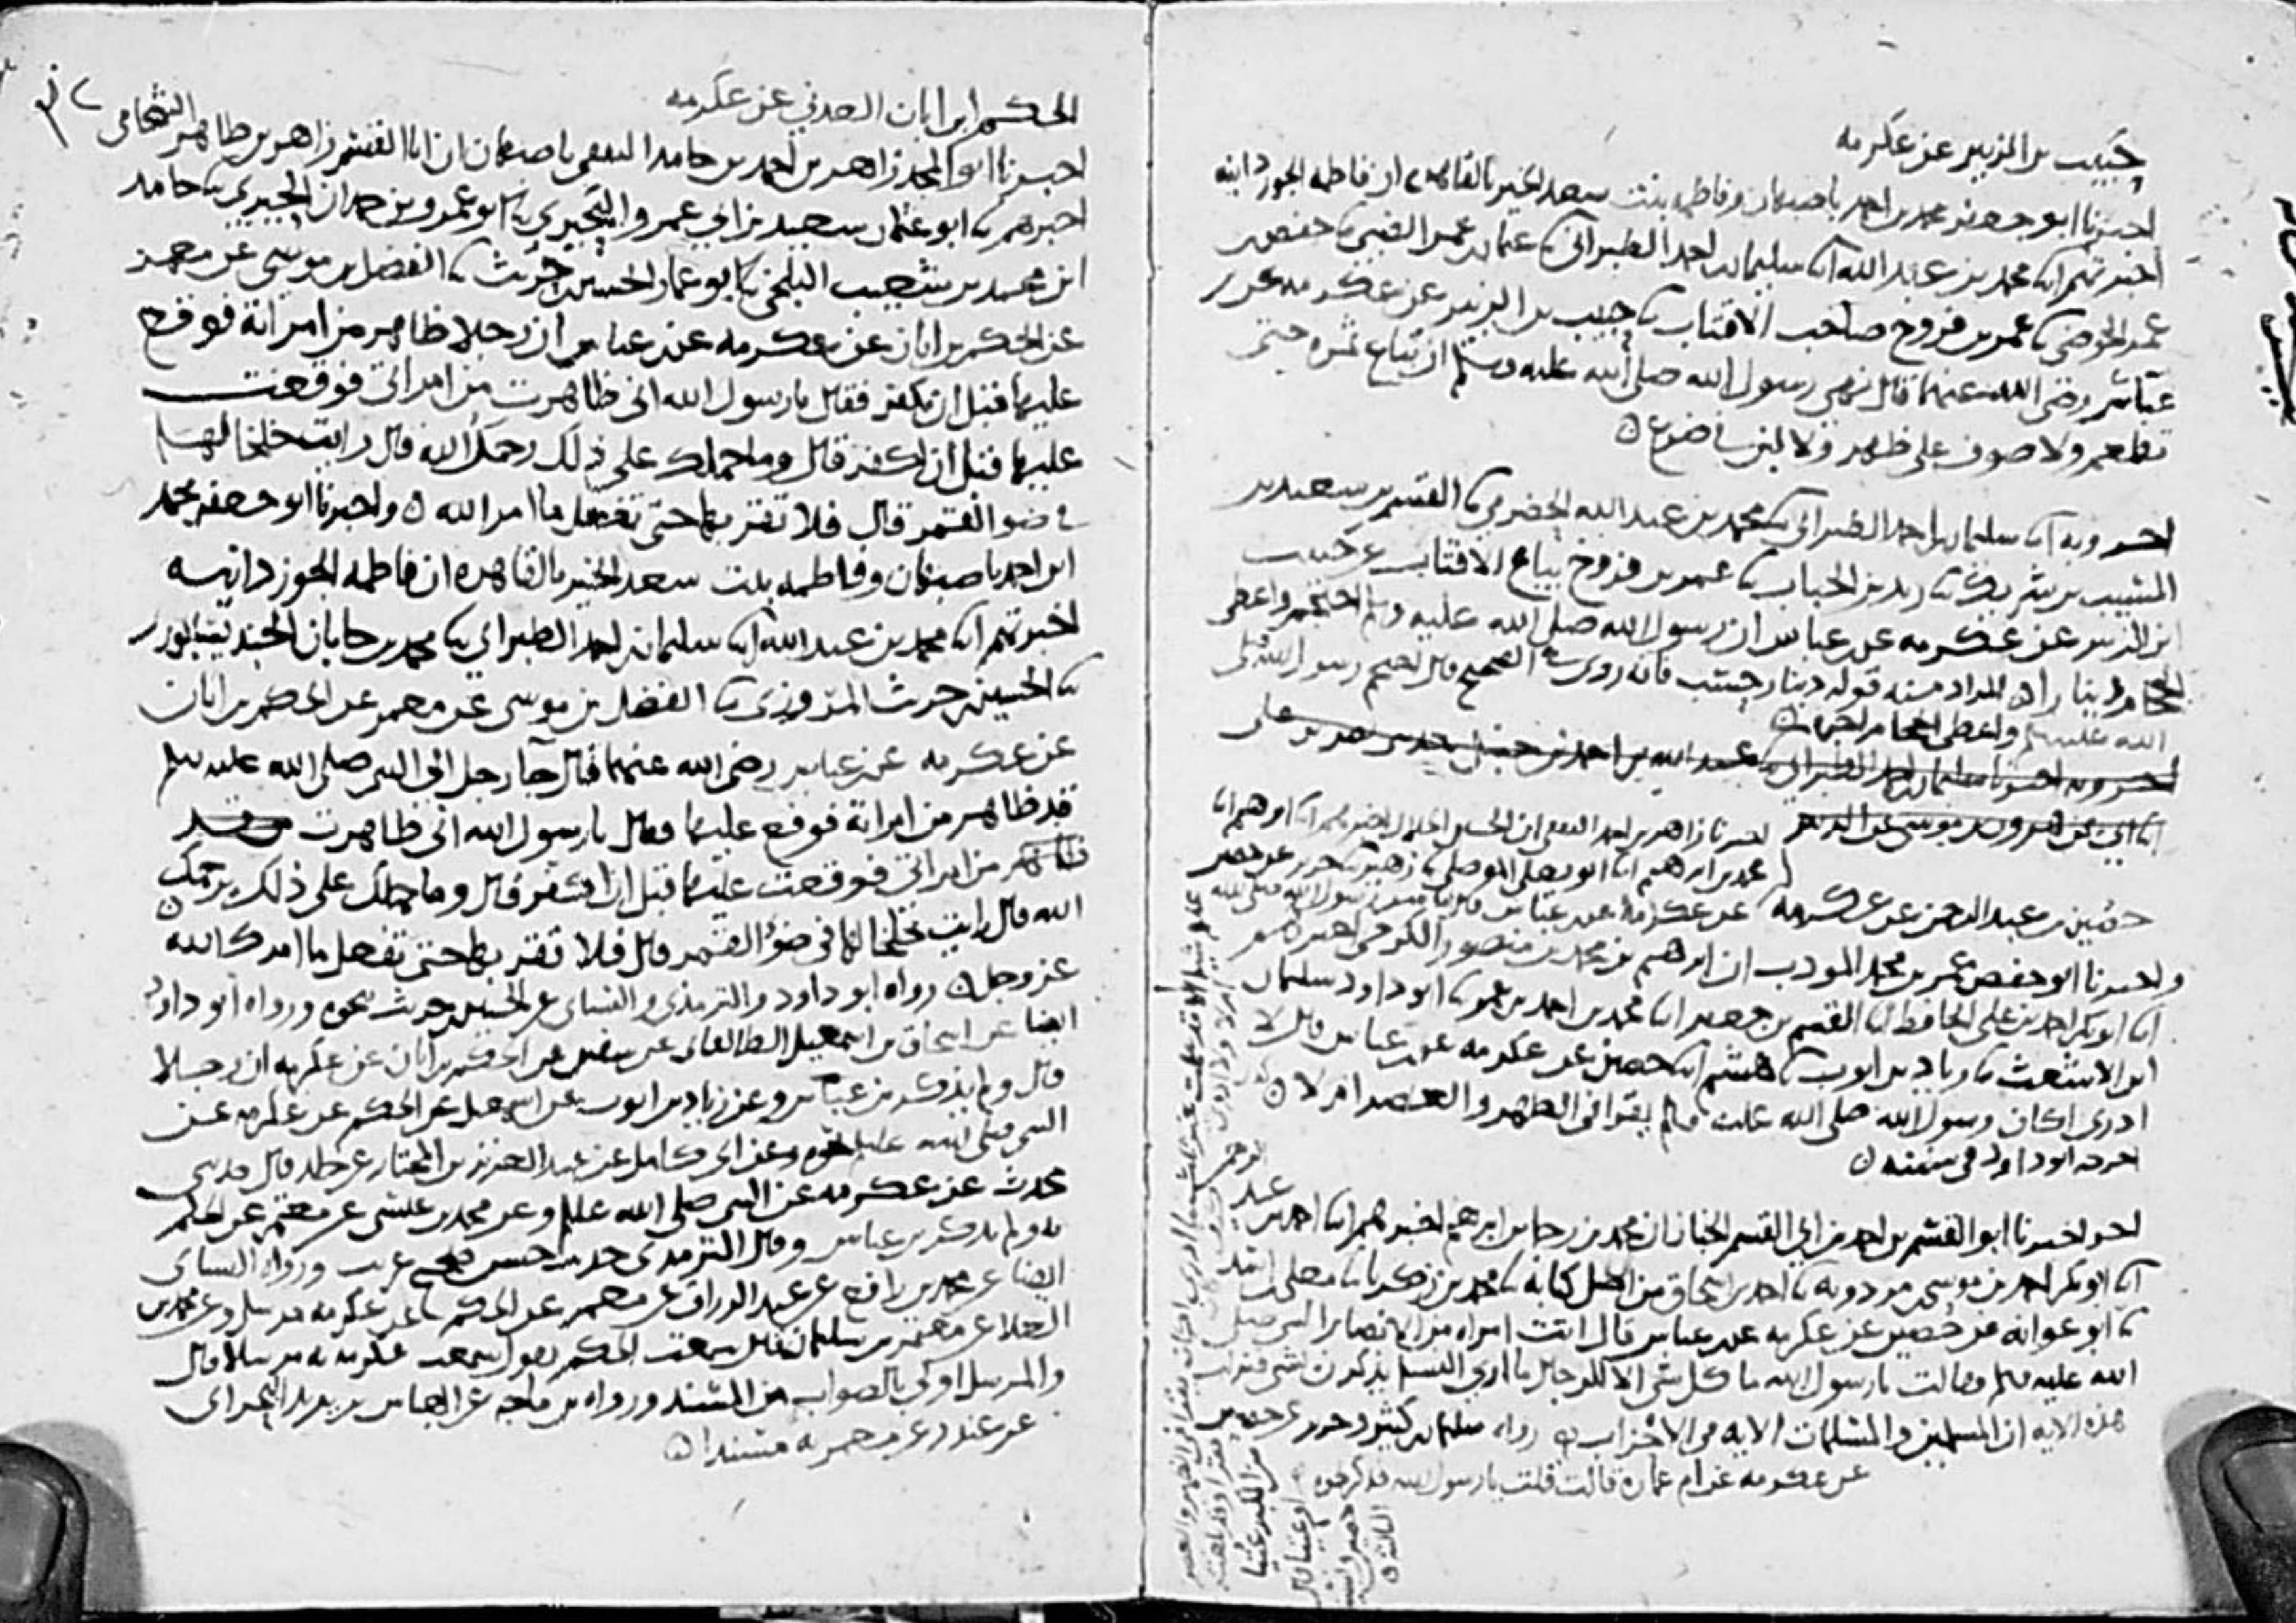 حبيب بن الزبير عن عكرمه
اخبرنا ابو جعفر محمد بن احمد باصبهان وفاطمه بنت سعد الخير بالقاهره ان فاطمه الجوزدانيه
اخبرتهم ابنا محمد بن عبد الله ابنا سليمان بن احمد الطبراني ثنا عثمان بن عمر الضبي ثنا حفص بن
عمر الحوضي ثنا عمر بن فروخ صاحب الاقتاب ثنا حبيب بن الزبير عن عكرمه عن بن
عباس رضي الله عنهما قال نهى رسول الله صلى الله عليه وسلم ان تباع ثمره حتى
تطعم ولا صوف على ظهر ولا لبن في ضرع
اخبر وبه ابنا سليمان بن احمد الطبراني ثنا محمد بن عبد الله الحضرمي ثنا القسم بن سعيد بن
المسيب بن شريك ثنا زيد بن الحباب ثنا عمر بن فروخ بياع الاقتاب عن حبيب
ابن الزبير عن عكرمه عن بن عباس ان رسول الله صلى الله عليه وسلم احتجم واعطى
الحجام دينارا المراد منه قوله دينار حسب فانه روى في الصحيح قال احتجم رسول الله صلى
الله عليه وسلم واعطى الحجام اجره
اخبر وبه اخبرنا سليمان بن احمد الطبراني ثنا عبد الله بن احمد بن حنبل
عن هرون بن موسى عن الزبير اخبرنا زاهر بن احمد الثقفي ان الحسين الخلال اخبرهم ابنا ابرهيم ابنا
محمد بن ابرهيم ابنا ابو يعلى الموصلي ثنا زهير ثنا جرير عن حصين
حصين بن عبد الرحمن عن عكرمه عن عكرمه عن بن عباس قال
واخبرنا ابو حفص عمر بن محمد المودب ان ابرهيم بن محمد بن منصور الكرخي اخبرهم
ابنا ابو بكر احمد بن علي الحافظ ابنا القسم بن جعفر ابنا محمد بن احمد بن عمرو ثنا ابو داود سليمان
ابن الاشعث ثنا زياد بن ايوب ثنا هشيم ابنا حصين عن عكرمه عن بن عباس قال لا
ادري اكان رسول الله صلى الله عليه وسلم يقرا في الظهر والعصر ام لا
اخرجه ابو داود في سننه
اخر اخبرنا ابو القسم بن احمد بن ابي القسم الخباز ان محمد بن رجا بن ابرهيم اخبرهم ابنا احمد بن عبد الرحمن
ابنا ابو بكر احمد بن موسى بن مردويه ثنا احمد بن اسحاق من اصل كتابه ثنا محمد بن زكريا ثنا معلى بن اسد
ثنا ابو عوانه عن حصين عن عكرمه عن بن عباس قال اتت امراه من الانصار النبي صلى
الله عليه وسلم فقالت يا رسول الله ما كل شي الا للرجال ما ارى النسا يذكرن بشي فنزلت
هذه الايه ان المسلمين والمسلمات الايه من الاحزاب رواه سليمان بن كثير وجرير عن حصين
عن عكرمه عن ام عمارة قالت قلت يا رسول الله فذكر نحوه
الحكم ابن ابان العدني عن عكرمه
اخبرنا ابو المجد زاهر بن احمد بن حامد الثقفي باصبهان ان ابا القسم زاهر بن طاهر الشحامي
اخبرهم ابنا ابو عثمان سعيد بن ابي عمرو البحيري ثنا ابو عمرو بن حمدان الحيري ثنا حامد
ابن محمد بن شعيب البلخي ثنا ابو عمار الحسين بن حريث ثنا الفضل بن موسى عن معمر
عن الحكم بن ابان عن عكرمه عن بن عباس ان رجلا ظاهر من امراته فوقع
عليها قبل ان يكفر فقال يا رسول الله اني ظاهرت من امراتي فوقعت
عليها قبل ان اكفر قال وما حملك على ذلك رحمك الله قال رايت خلخالها
في ضو القمر قال فلا تقربها حتى تفعل ما امر الله واخبرنا ابو جعفر محمد
ابن احمد باصبهان وفاطمه بنت سعد الخير بالقاهره ان فاطمه الجوزدانيه
اخبرتهم ابنا محمد بن عبد الله ابنا سليمان بن احمد الطبراني ثنا محمد بن حابان الجنديسابوري
ثنا الحسين بن حريث المروزي ثنا الفضل بن موسى عن معمر عن الحكم بن ابان
عن عكرمه عن بن عباس رضي الله عنهما قال جا رجل الى النبي صلى الله عليه وسلم
قد ظاهر من امراته فوقع عليها فقال يا رسول الله اني ظاهرت من قد
ظاهر من امراتي فوقعت عليها قبل ان اكفر قال وما حملك على ذلك يرحمك
الله قال رايت خلخالها في ضوء القمر قال فلا تقربها حتى تفعل ما امرك الله
عز وجل رواه ابو داود والترمذي والنساي عن الحسين بن حريث نحوه ورواه ابو داود
ايضا عن اسحاق بن اسمعيل الطالقاني عن سفين عن الحكم بن ابان عن عكرمه ان رجلا
قال ولم يذكر بن عباس وعن زياد بن ايوب عن اسمعيل عن الحكم عن عكرمه عن
النبي صلى الله عليه نحوه وعن ابي كامل عن عبد العزيز بن المختار عن خالد قال حدثني
محدث عن عكرمه عن النبي صلى الله عليه وسلم وعن محمد بن عيسى عن معتمر عن الحكم
به ولم يذكر بن عباس وقال الترمذي حديث حسن صحيح غريب ورواه النساي
ايضا عن محمد بن رافع عن عبد الرزاق عن معمر عن الحكم عن عكرمه مرسل وعن محمد بن
العلا عن معتمر بن سليمان قال سمعت الحكم يقول سمعت عكرمه به مرسلا قال
والمرسل اولى بالصواب من المسند ورواه بن ماجه عن العباس بن يزيد البحراني
عن غندر عن معمر به مسندا